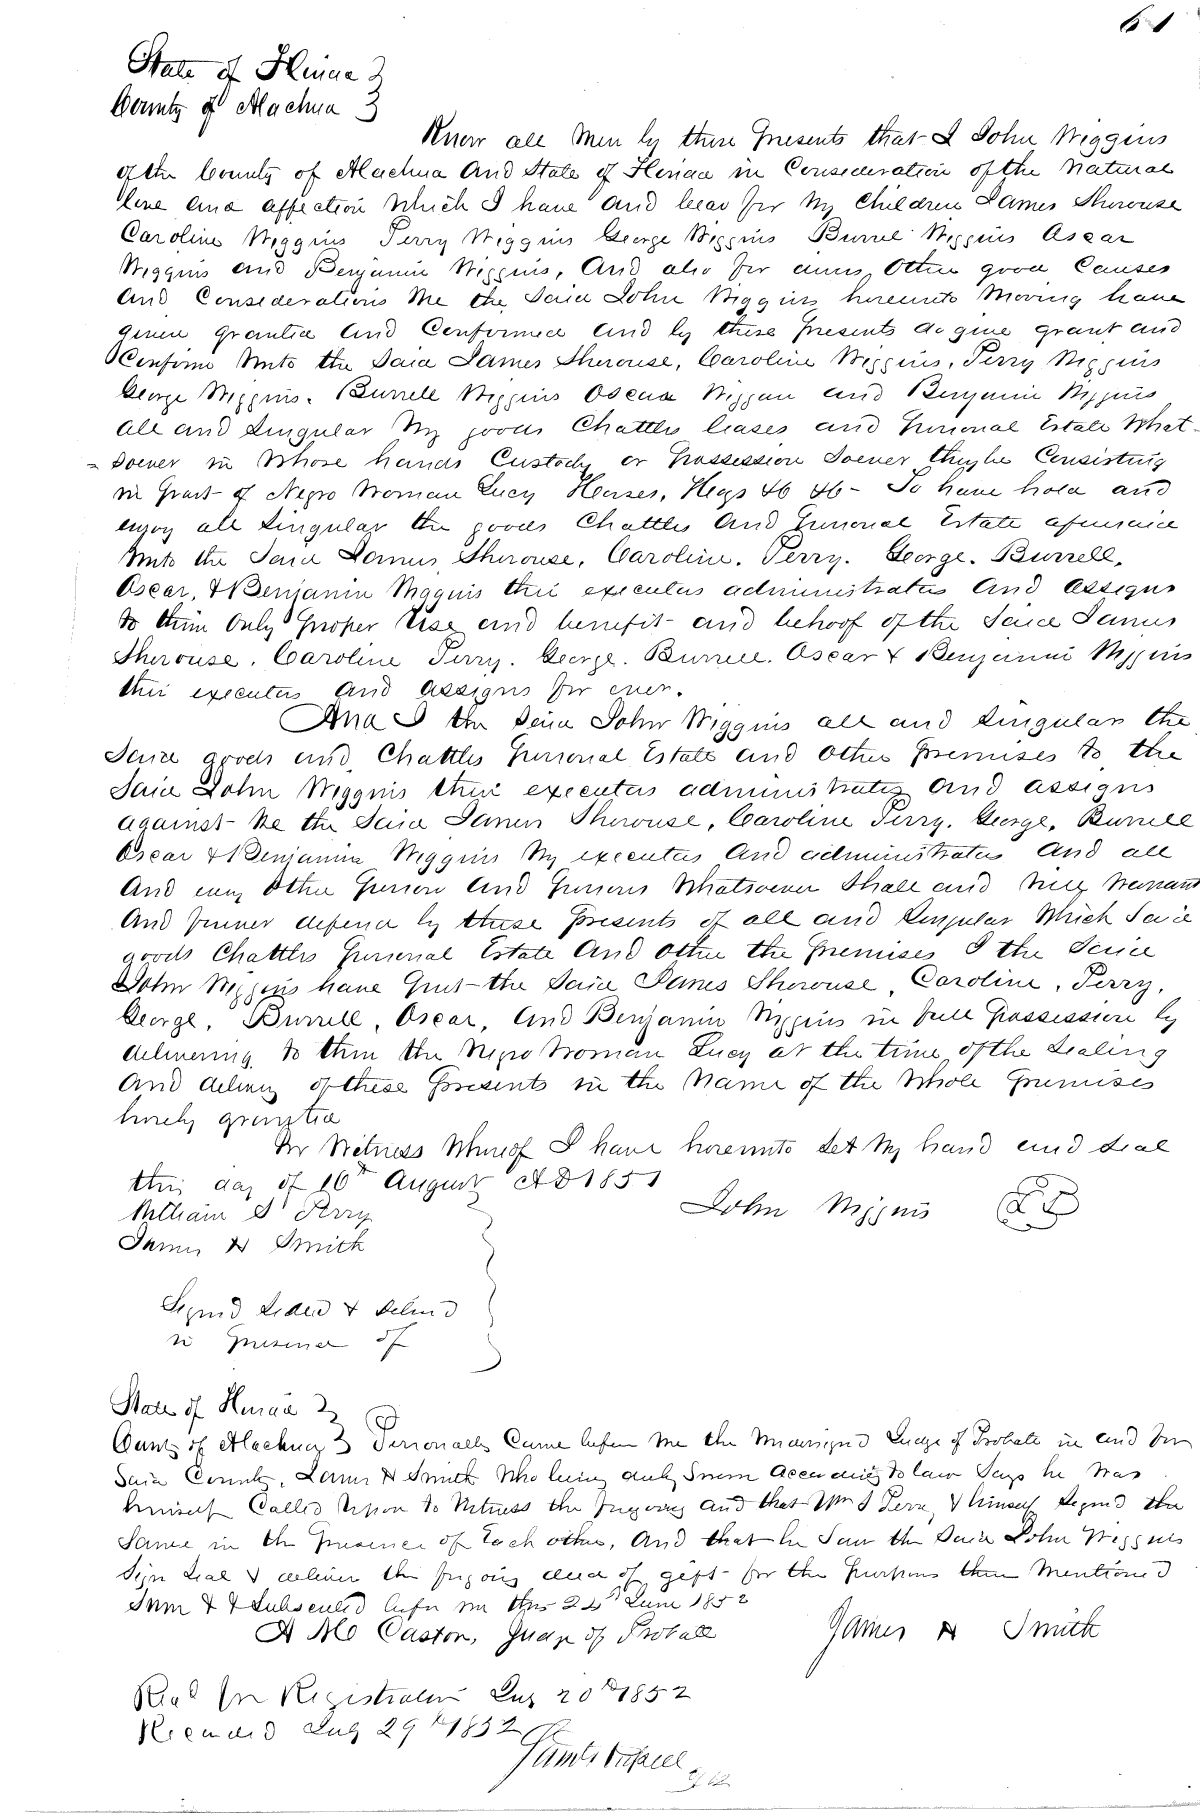 61
State of Florida }
County of Alachua }
Know all Men by these Presents that I John Wiggins
of the County of Alachua and State of Florida in Consideration of the Natural
love and affection Which I have and bear for My Children James Sherouse
Caroline Wiggins Perry Wiggins George Wiggins Burrel Wiggins Oscar
Wiggins and Benjamin Wiggins, And also for divers Other good Causes
And Considerations Me the Said John Wiggins hereunto Moving have
given granted and Confirmed and by these Presents do give grant and
Confirm Unto the Said James Sherouse, Caroline Wiggins, Perry Wiggins
George Wiggins. Burrell Wiggins Oscar Wiggins and Benjamin Wiggins
all and Singular My goods Chattles leases and Personal Estate What-
-soever in Whose hands Custody or Possession Soever they be Consisting
in Part of Negro Woman Lucy Horses, Hogs &c &c - To have hold and
enjoy all Singular the goods Chattles and Personal Estate aforesaid
Unto the Said James Sherouse, Caroline. Perry. George. Burrell,
Oscar, & Benjamin Wiggins their executors administrators and assigns
to their Only Proper Use and benefit and behoof of the Said James
Sherouse, Caroline Perry. George. Burrell. Oscar & Benjamin Wiggins
their executors and assigns for ever.
And I the Said John Wiggins all and Singular the
Said goods and Chattles Personal Estate and Other Premises to the
Said John Wiggins their executors administrators and assigns
against Me the Said James Sherouse, Caroline Perry. George, Burrell
Oscar & Benjamin Wiggins My executors and administrators and all
And every Other Person and Persons Whatsoever Shall and Will Warrant
And forever defend by these Presents of all and Singular Which Said
goods Chattles Personal Estate And Other the Premises I the Said
John Wiggins have Put the Said James Sherouse, Caroline, Perry,
George, Burrell, Oscar, and Benjamin Wiggins in full Possession by
delivering to them the Negro Woman Lucy at the time of the Sealing
And delivery of these Presents in the Name of the Whole Premises
hereby granted
In Witness Whereof I have hereunto Set My hand and Seal
this day of 16th August AD 1851
John Wiggins LS
William S Perry
James H Smith
Signd Seald & delivd
in Presence of
State of Florida }
County of Alachua } Personally Came before Me the Undersignd Judge of Probate in and for
Said County, James H Smith Who being duly Sworn According to law Says he Was
himself Called Upon to Witness the foregoing and that Wm S Perry & himself Signd the
Same in the Presence of Each other, And that he Saw the Said John Wiggins
Sign Seal & deliver the foregoing deed of gift for the Purposes therein Mentioned
Sworn & & Subscribed before me this June 1852
James H Smith
Judge of Probate
Recd for Registration 20th 1852
Recorded 29th 1852